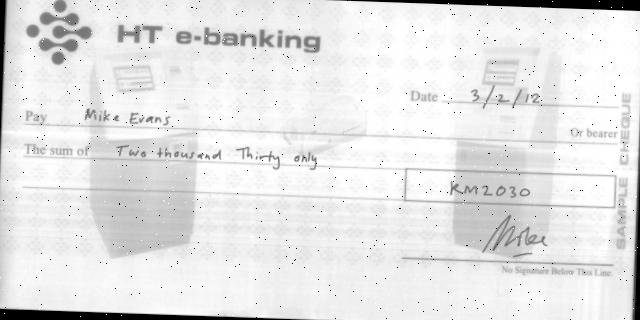 HT e-banking
Date 3/2/12
Pay Mike Evans
Or bearer
The sum of Two thousand Thirty only
RM2030
Mike
No Signature Below This Line.
SAMPLE CHEQUE